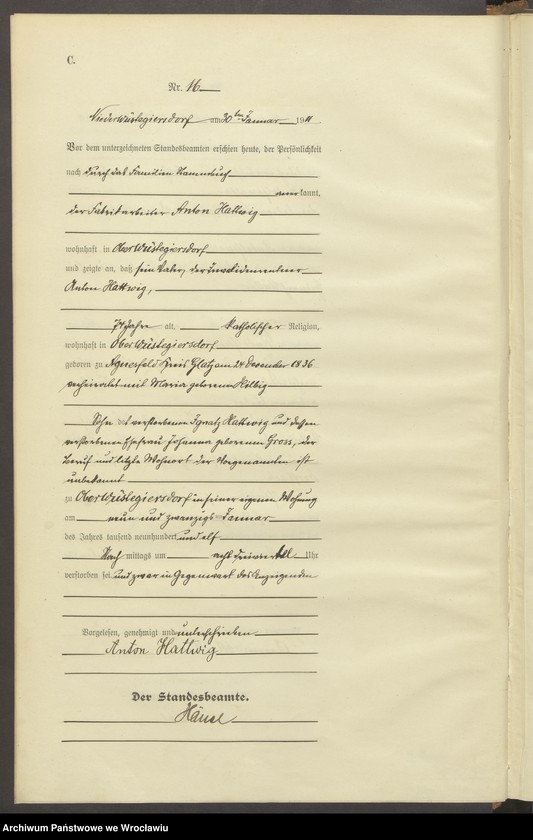 C.
Nr. 16
Niederwüstegiersdorf am 30ten Januar 1911
Vor dem unterzeichneten Standesbeamten erschien heute, der Persönlichkeit
nach durch das Familien Stammbuch
anerkannt,
der Fabrikarbeiter Anton Hattwig
wohnhaft in Oberwüstegiersdorf
und zeigte an, daß sein Vater, der Invalidenrentner
Anton Hattwig,
74 Jahre alt, katholischer Religion,
wohnhaft in Oberwüstegiersdorf
geboren zu Kreis Glatz am 24 Dezember 1836
verheiratet mit Maria geborenen
Sohn des verstorbenen Ignatz Hattwig und dessen
verstorbenen Ehefrau Johanna geborenen Gross, der
Beruf und letzte Wohnort der Vorgenannten ist
unbekannt
zu Oberwüstegiersdorf in seiner eigenen Wohnung
am neun und zwanzigs Januar
des Jahres tausend neunhundert und elf
Nach mittags um acht dreiviertel Uhr
verstorben sei und zwar in Gegenwart des Anzeigenden
Vorgelesen, genehmigt und unterschrieben
Anton Hattwig
Der Standesbeamte.
Hänsel
Archiwum Państwowe we Wrocławiu